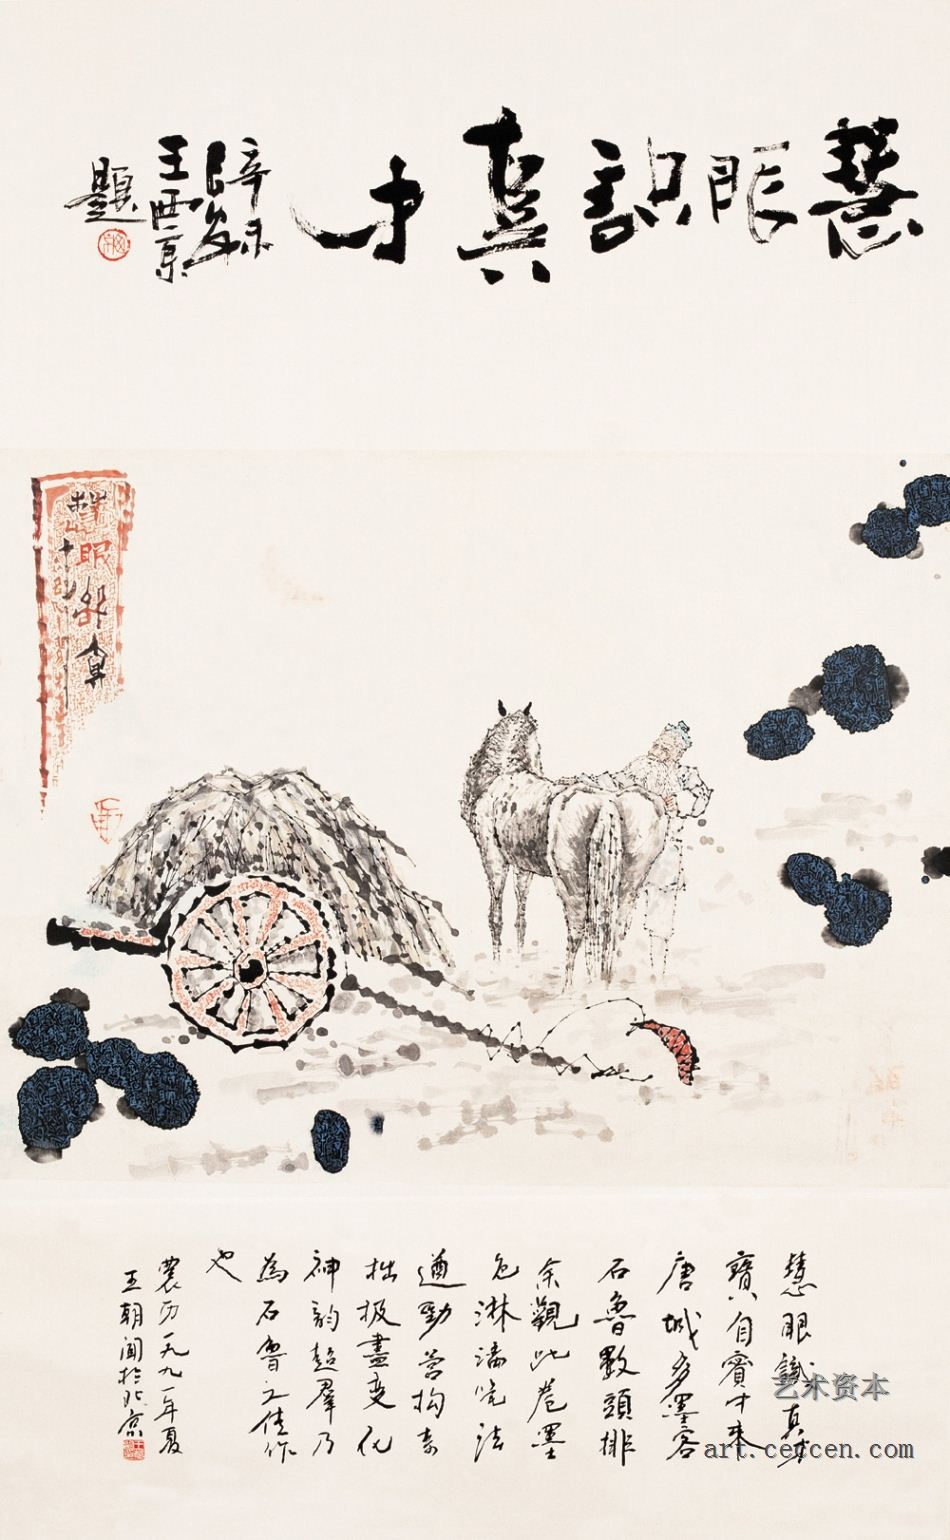 慧眼识真才
辛未
长安
王西京
题
慧眼
慧眼识真才
寶自賓中来
唐城多墨客
石魯數頭排
余觀此卷墨
色淋漓筆法
遒勁篇构奇
拙极盡变化
神韵超羣乃
為石魯之佳作
也
農历一九九一年夏
王朝闻於北京
艺术资本
art.cetcen.com